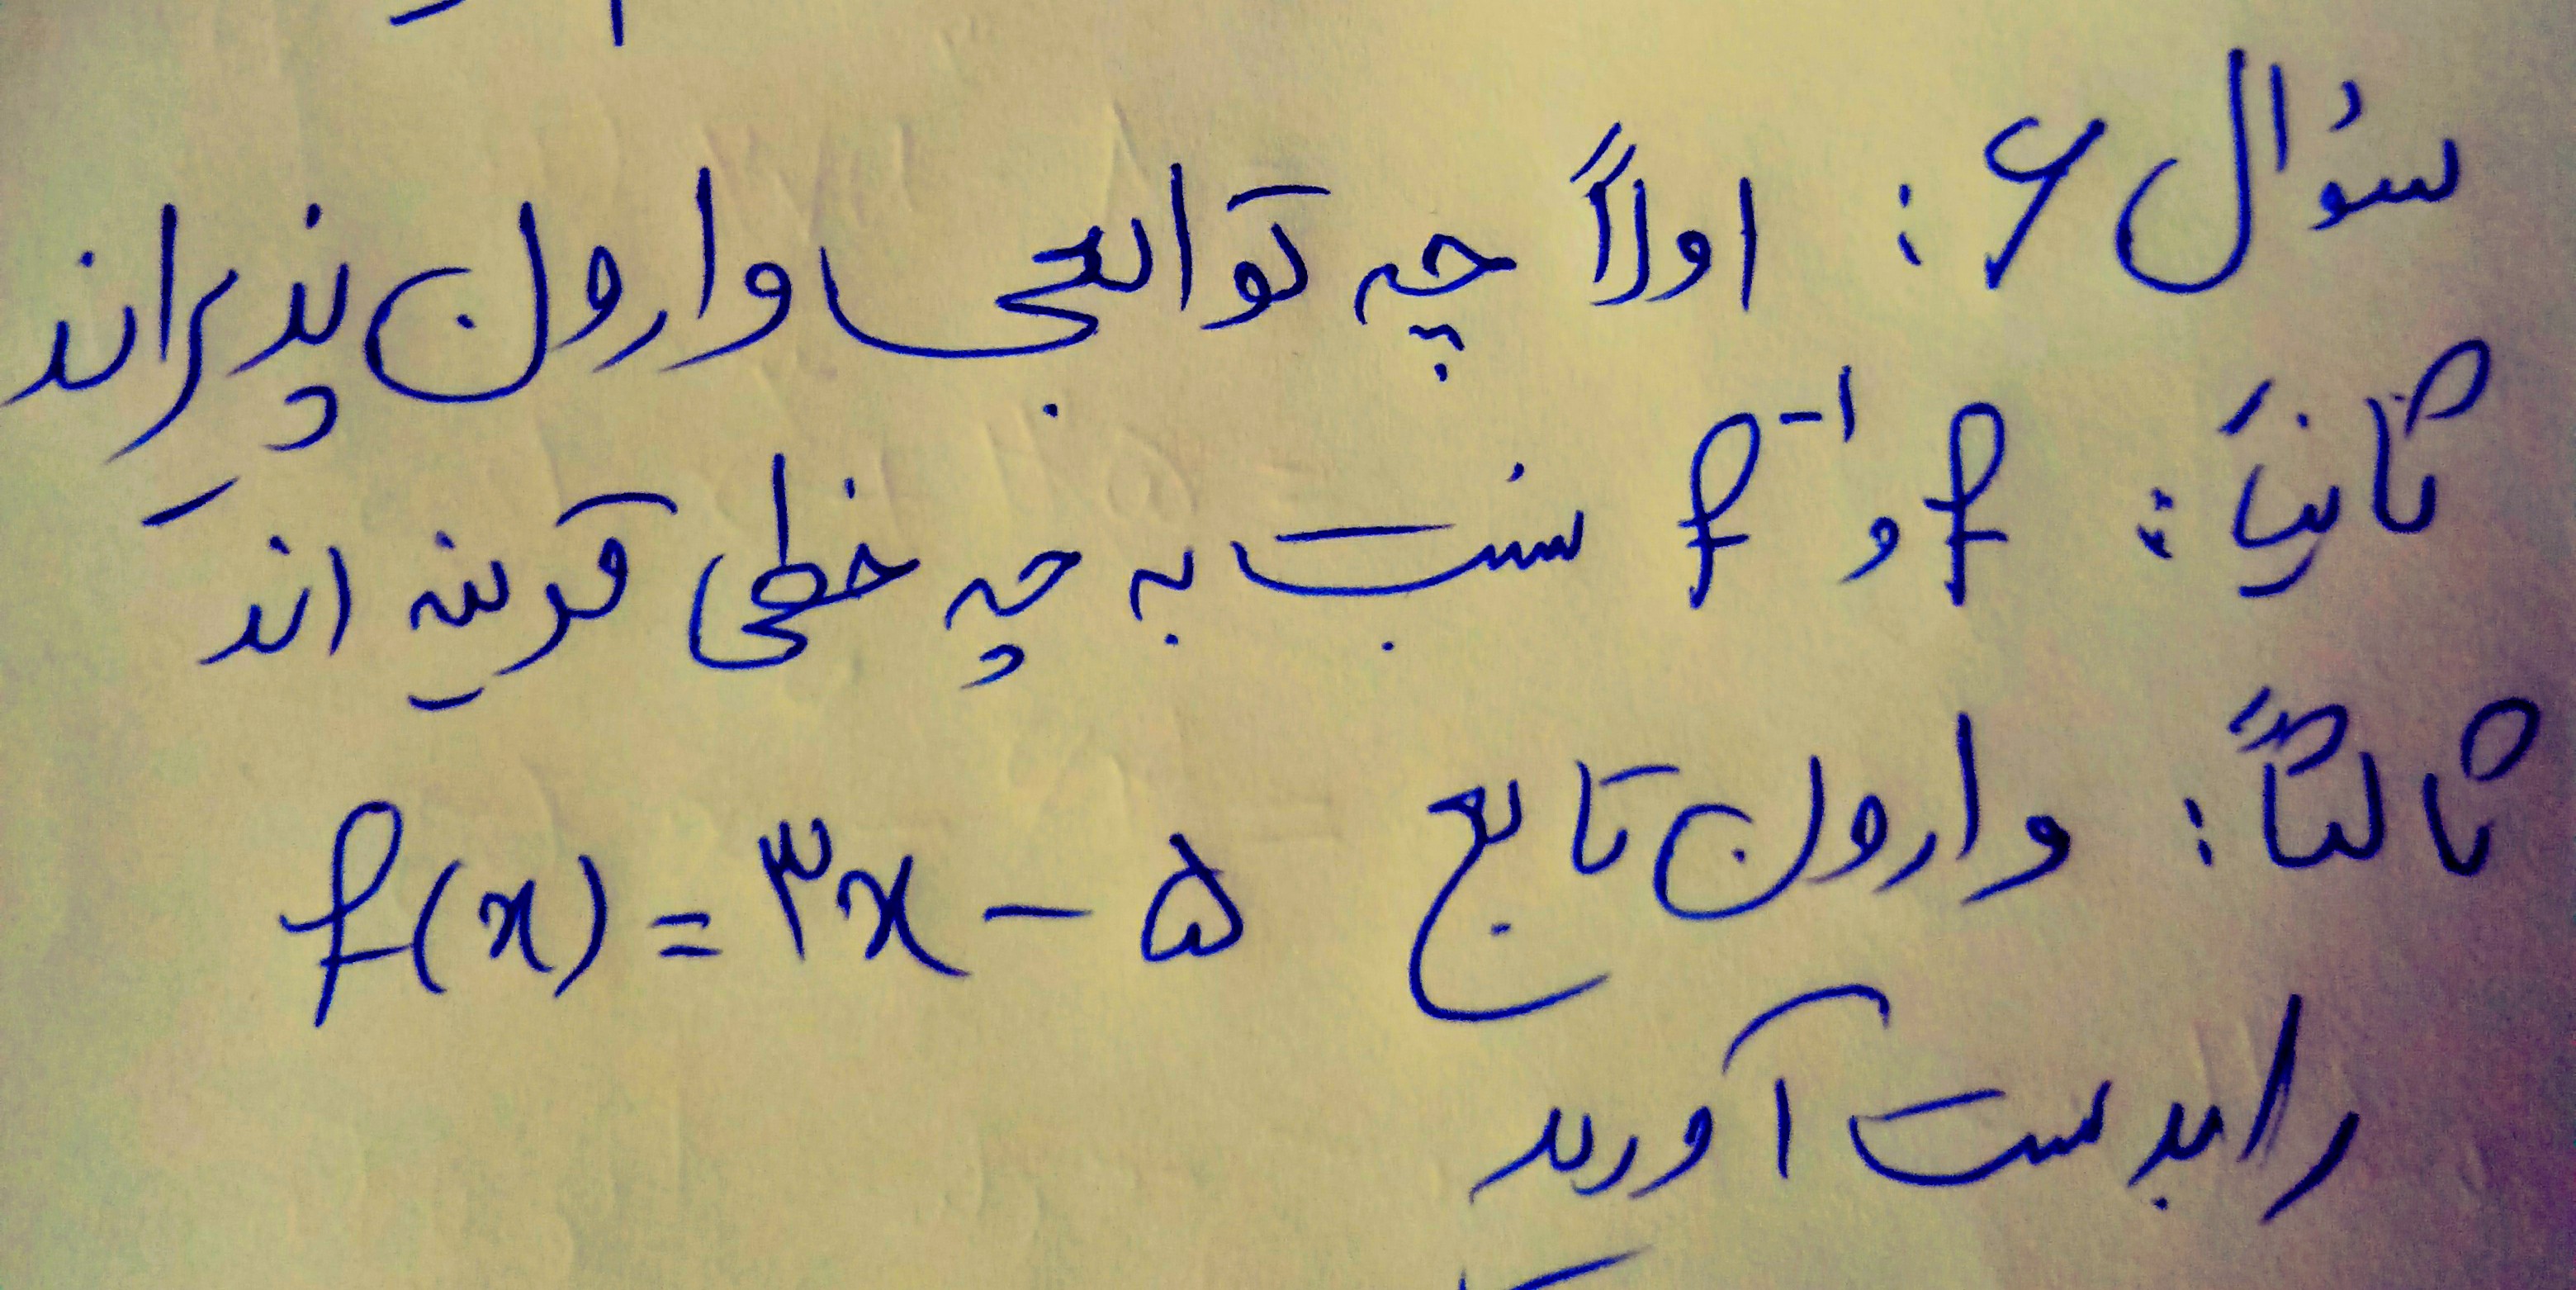 سؤال ۶ : اولاً چه توابعی وارون پذیراند
ثانیاً : f و f⁻¹ نسبت به چه خطی قرینه اند
ثالثاً : وارون تابع f(x) = ۳x − ۵
را بدست آورید